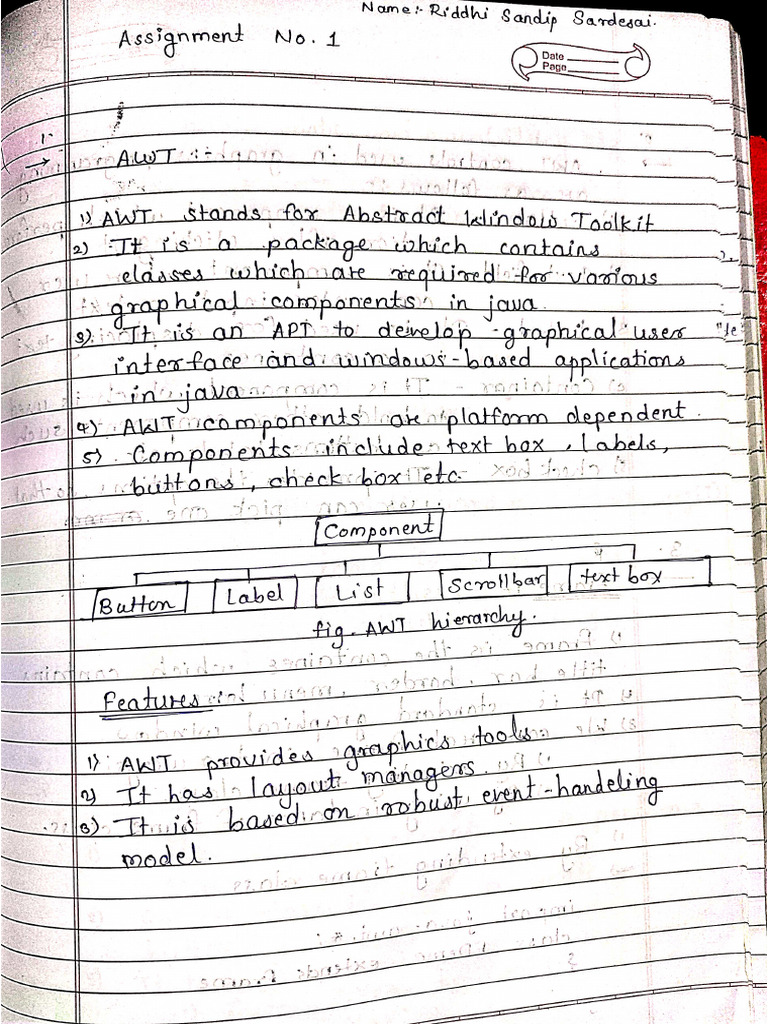 Name:- Riddhi Sandip Sardesai.
Assignment No. 1
Date
Page
1.
→ AWT :-
1) AWT stands for Abstract Window Toolkit
2) It is a package which contains
classes which are required for various
graphical components in java
3) It is an API to develop graphical user
interface and windows-based applications
in java
4) AWT components are platform dependent.
5) Components include text box, labels,
buttons, check box etc.
Component
Button Label List Scrollbar text box
fig. AWT hierarchy.
Features:-
1) AWT provides graphics tools
2) It has layout managers.
3) It is based on robust event-handeling
model.